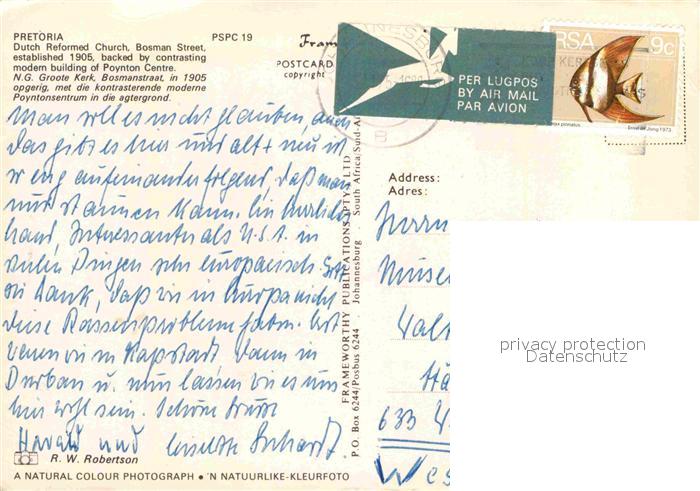 PRETORIA PSPC 19
Dutch Reformed Church, Bosman Street,
established 1905, backed by contrasting
modern building of Poynton Centre.
N.G. Groote Kerk, Bosmanstraat, in 1905
opgerig, met die kontrasterende moderne
Poyntonsentrum in die agtergrond.
POSTCARD
copyright
PER LUGPOS
BY AIR MAIL
PAR AVION
RSA 9c
Man will es nicht glauben, auch
das gibt es hier und alt + neu ist
so eng aufeinander folgend, daß man
nur staunen kann. Ein herrlich
Land, Interessanter als U.S.A. in
vielen Dingen sehr europäisch. Gott
sei Dank, daß wir in Europa nicht
diese Rassenprobleme haben. Erst
waren wir in Kapstadt dann in
Durban u. nun lassen wir es uns
hier wohl sein. Schöne Grüße
Harald und Liselotte
FRAMEWORTHY PUBLICATIONS (PTY) LTD
P.O. Box 6244/Posbus 6244 Johannesburg South Africa/Suid-A
Address:
Adres:
Herrn
633 W
Wes
privacy protection
Datenschutz
R. W. Robertson
A NATURAL COLOUR PHOTOGRAPH ● 'N NATUURLIKE-KLEURFOTO